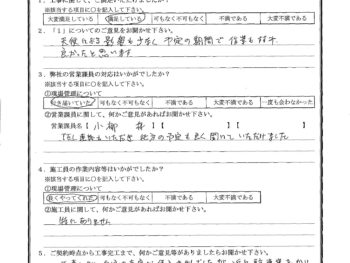 ※該当する項目に○を記入して下さい。
大変満足している 満足している 可も不可も無く 不満である 大変不満である
2．「1」についてのご意見をお聞かせ下さい。
天候による影響も少なく 予定の期間で作業も
良かったと思います
3．弊社の営業課員の対応はいかがでしたか？
※該当する項目に○を記入して下さい。
①現場管理について
行き届いていた 可もなく不可もなく 不満である 大変不満である 一度も会わなかった
②営業課員に関して、何かご意見があればお聞かせ下さい。
営業課員名【小柳 様】【 】【 】
TEL連絡もいただき 此方の予定も良く聞いていただけました
4．施工員の作業内容等はいかがでしたか？
※該当する項目に○を記入して下さい。
①現場管理について
良くやってくれた 可もなく不可もなく 不満である 大変不満である
②施工員に関して、何かご意見があればお聞かせ下さい。
特にありません
5．ご契約時点から工事完工まで、何かご意見等がありましたらお聞かせ下さい。